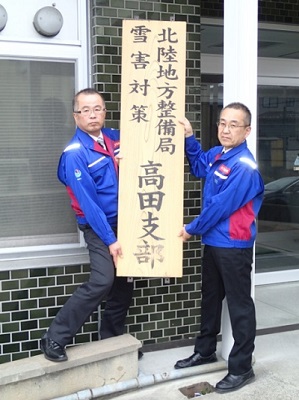 北陸地方整備局
雪害対策
高田支部